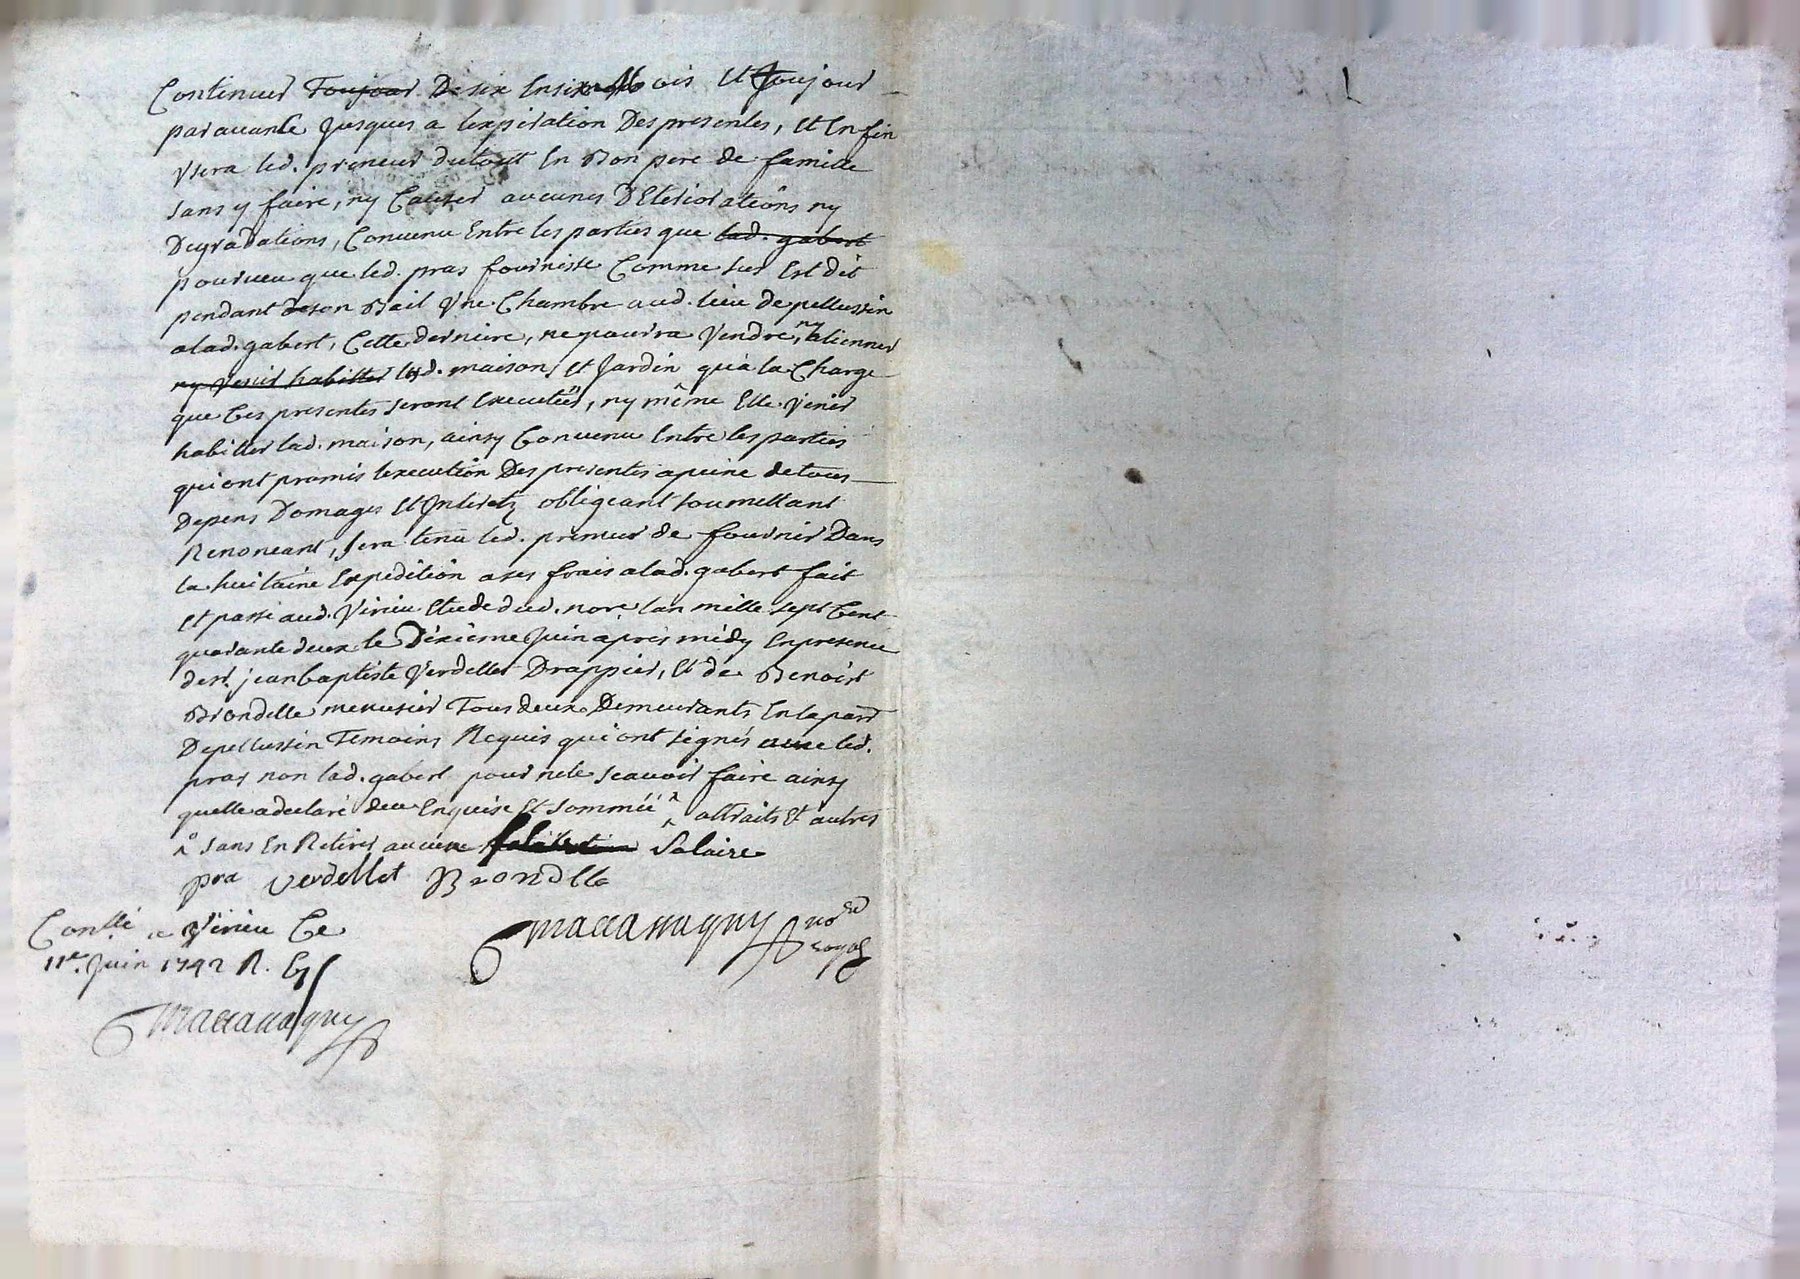 Continuer Toujour De six En six Mois Et Toujour
par avance Jusques a lexpiration Des presentes, Et Enfin
Usera led. preneur du tout En Bon pere de famille
sans y faire, ny Causer aucunes DEteriorations ny
Degradations, Convenu Entre les parties que lad. gabert
pourveu que led. pras fournisse Comme sus Est dit
pendant de son Bail Une Chambre aud. lieu de pellussin
a lad. gabert, Cette derniere, ne pourra Vendre, ny alienner
ny Venir habitter lesd. maison, et Jardin qu'a la Charge
que Ces presentes seront Executées, ny même Elle Venir
habitter lad. maison, ainsy Convenu Entre les parties
qui ont promis lexecution Des presentes a peine de tous
Depens Domages Et Interetz obligeant soumettant
Renonceant, sera tenu led. preneur de fournir Dans
la huitaine Expedition a ses frais a lad. gabert fait
Et passé aud. Virieu Etude dud. nore lan mille sept Cent
quarante deux le Dixieme Juin après midy En presence
de sr. jean baptiste Verdellet Drappier, Et de Benoist
Brondelle menusier Tous deux Demeurants En la parr
De pellussin Temoins Requis qui ont signés avec led.
pras non lad. gabert pour ne le scavoir faire ainsy
quelle a declaré deue Enquise Et Sommée attraits Et autres
sans En Retirer aucune Salaire
pra Verdellet Brondelle
Macassagny no re
royal
Conllé a Virieu Ce
11e. Juin 1742 R.
Macassagny